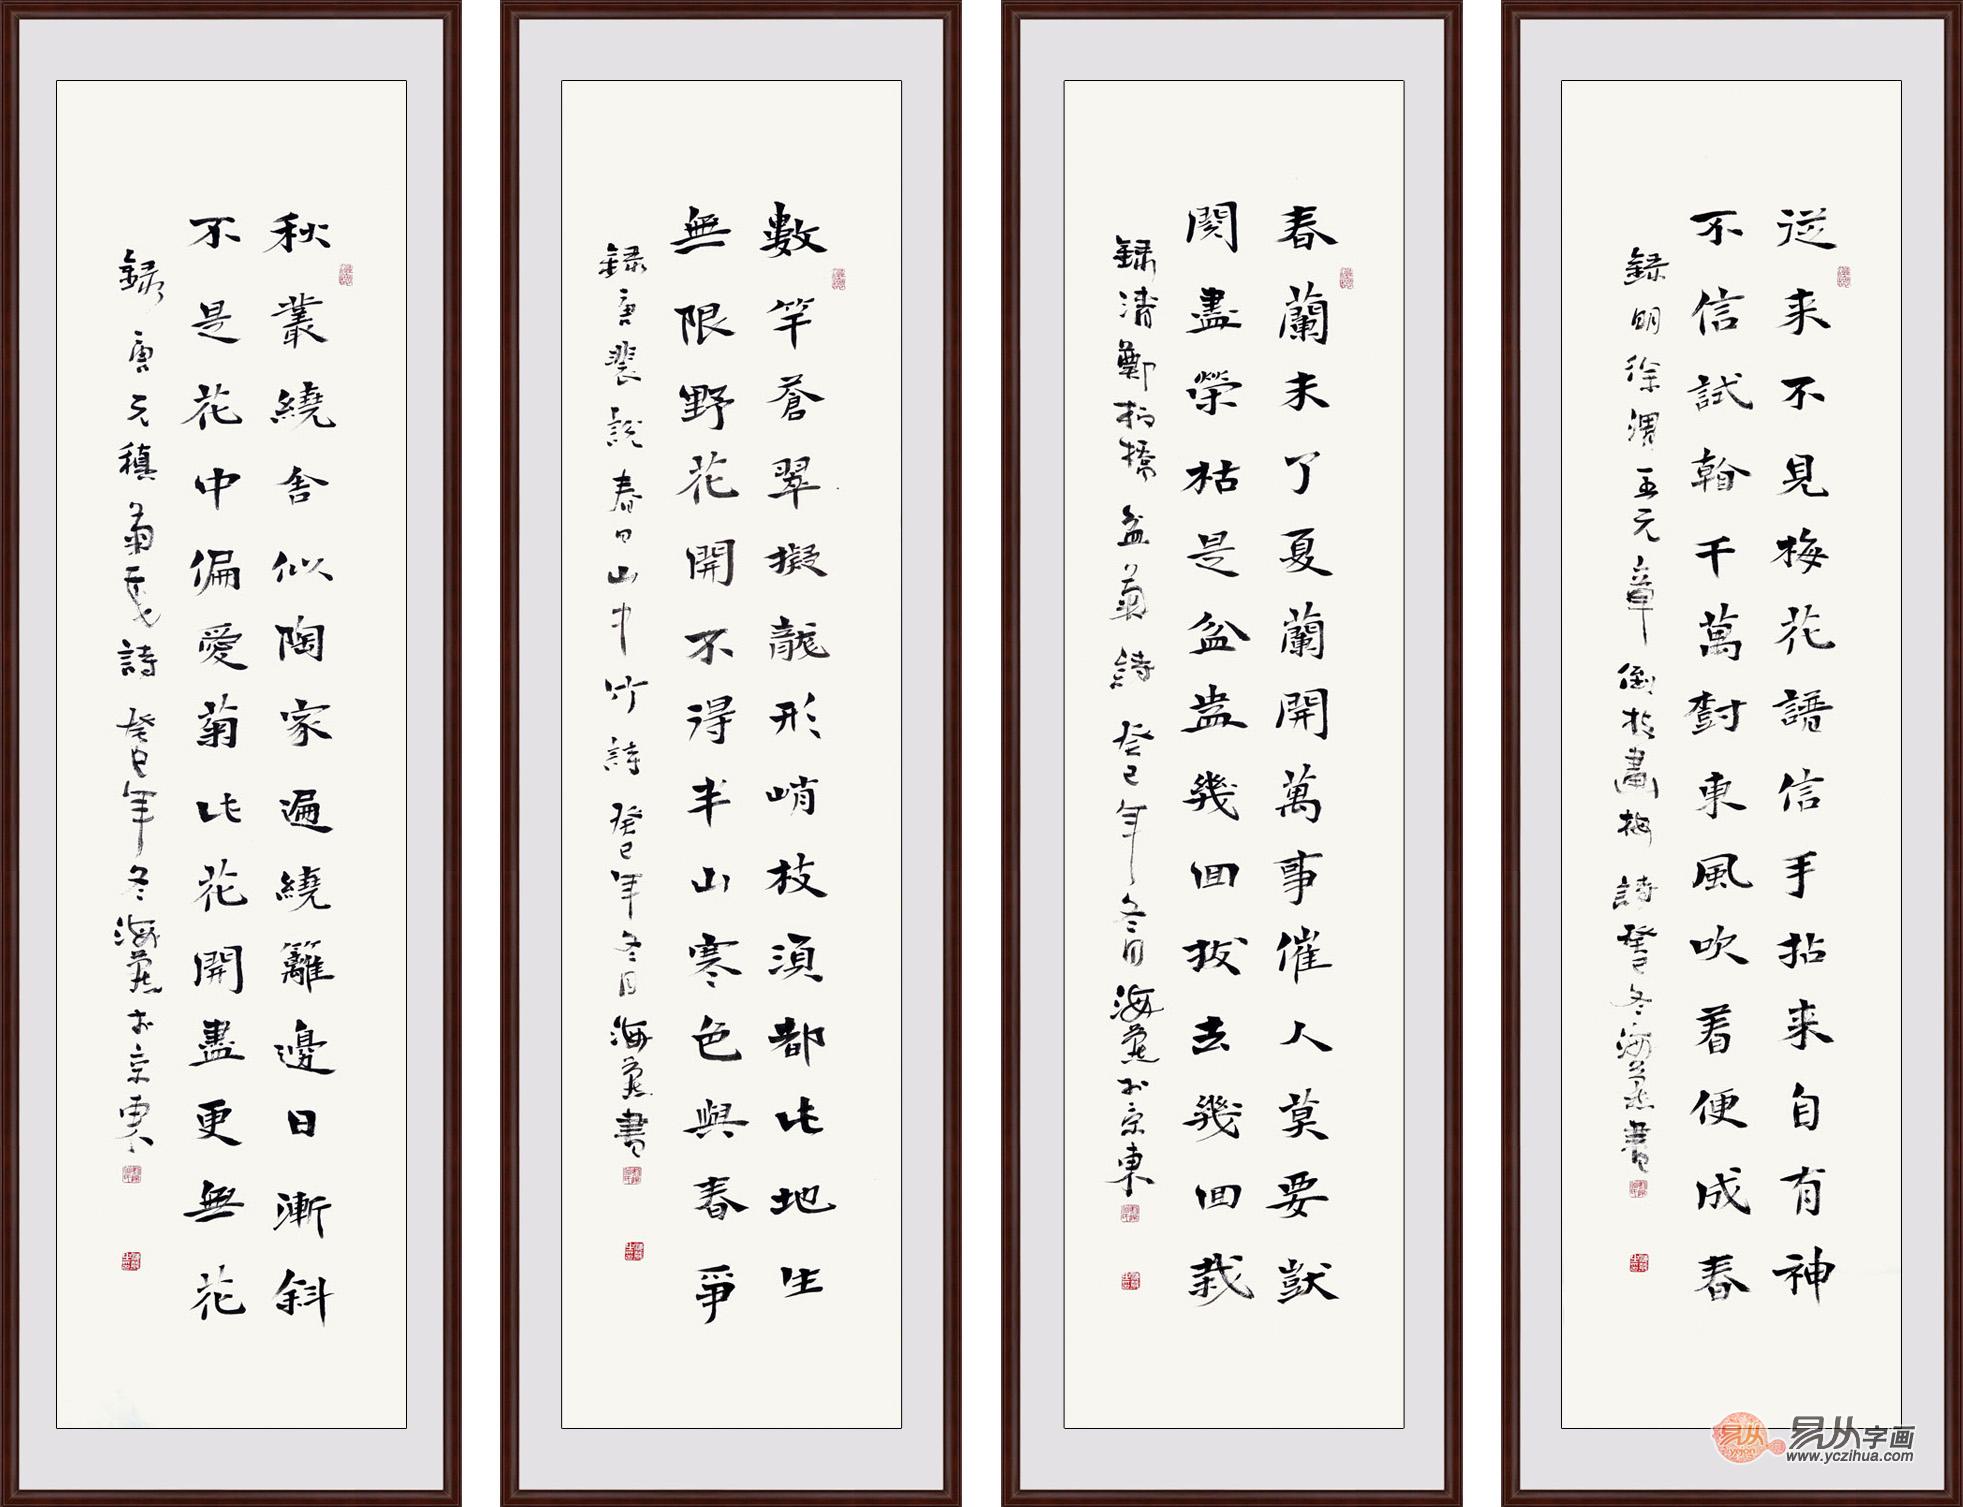 從来不見梅花譜信手拈来自有神
不信試看千萬樹東風吹着便成春
録明徐渭王元章倒枝畫梅詩癸巳冬海燕書
春蘭未了夏蘭開萬事催人莫要獃
閲盡榮枯是盆盎幾回拔去幾回栽
録清鄭板橋盆蘭詩癸巳年冬月海燕於京東
數竿蒼翠擬龍形峭枝須都此地生
無限野花開不得半山寒色與春爭
録唐裴説春日山中竹詩癸巳年冬月海燕書
秋叢繞舍似陶家遍繞籬邊日漸斜
不是花中偏愛菊此花開盡更無花
録唐元稹菊花詩癸巳年冬海燕於京東
易从
yicjon
易从字画
www.yczihua.com